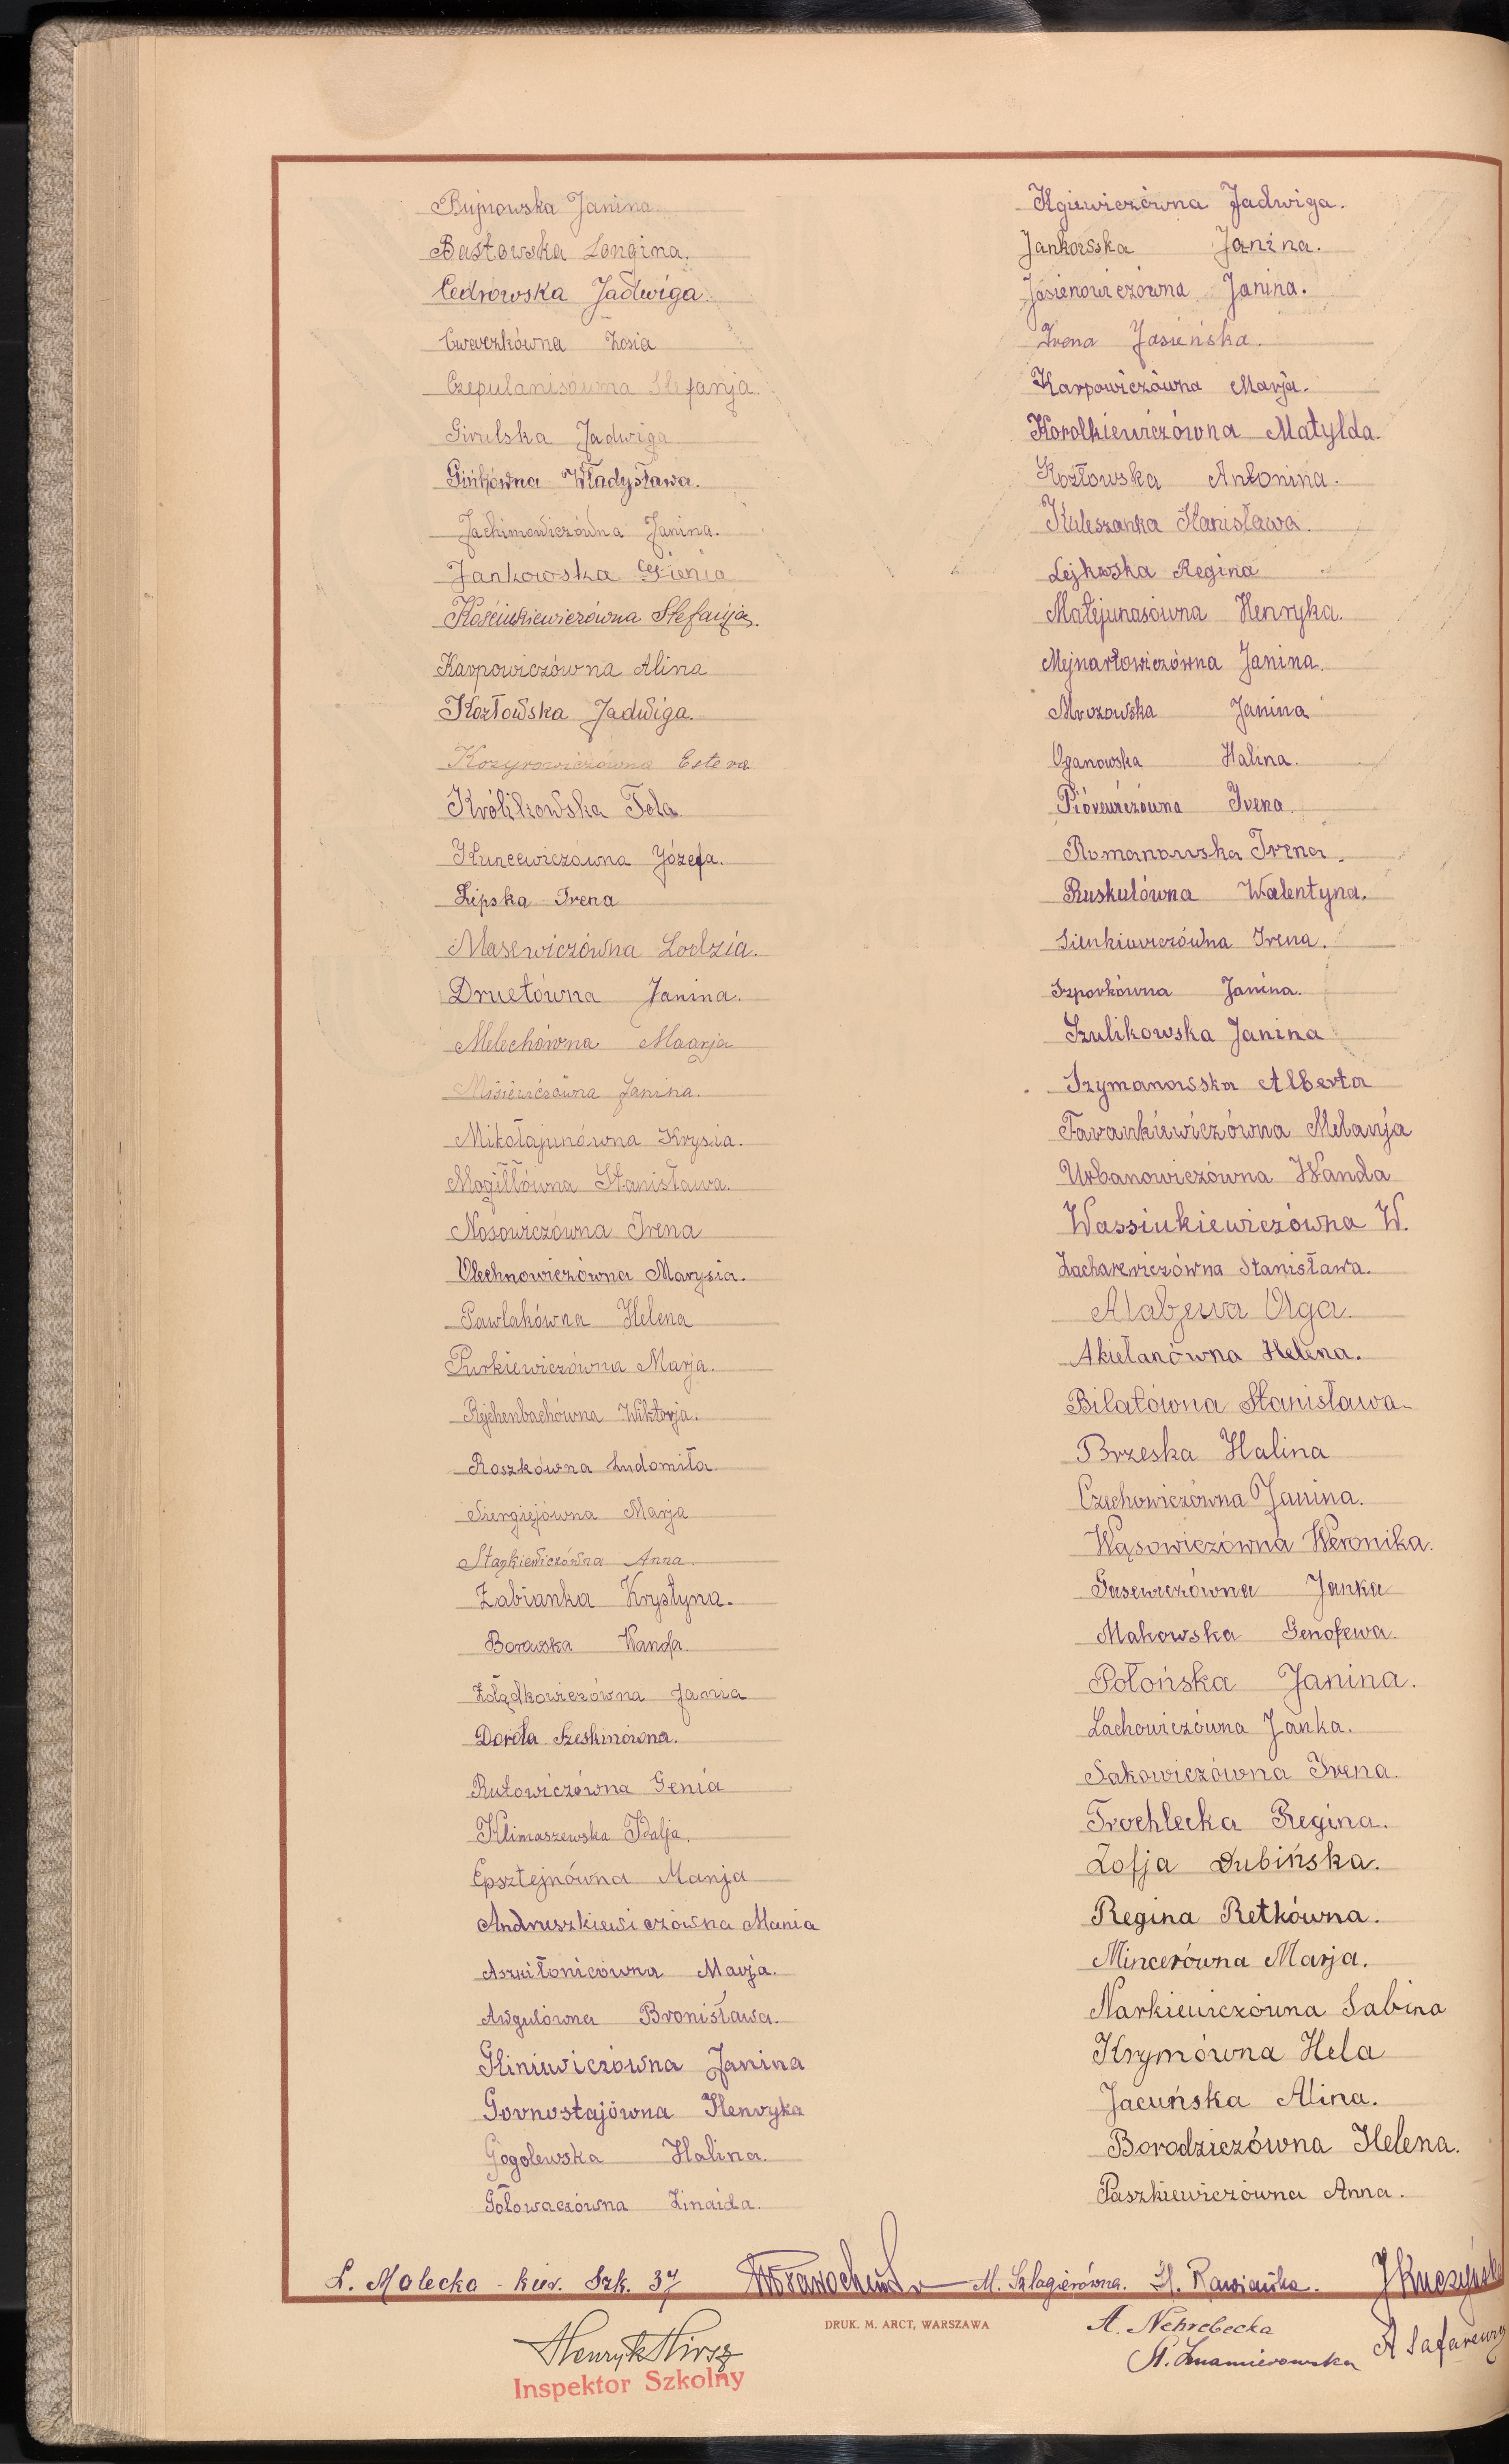 Bujnowska Janina
Bastowska Longina.
Cedrowska Jadwiga.
Ćwerczkówna Zosia
Czepulanisówna Stefanja.
Girulska Jadwiga
Gińkówna Władysława.
Jachimowiczówna Janina.
Jankowska Gienia
Kościukiewiczówna Stefanja.
Karpowiczówna Alina
Kozłowska Jadwiga.
Kozyrowiczówna Estera
Królikowska Tola
Kuncewiczówna Józefa.
Lipska Irena
Masewiczówna Lodzia.
Druetówna Janina.
Melechówna Maarja
Misiewiczówna Janina.
Mikołajunówna Krysia.
Mogiłłówna Stanisława.
Nosowiczówna Irena
Olechnowiczówna Marysia.
Pawlakówna Helena
Purkiewiczówna Marja.
Rejchenbachówna Wiktorja.
Roszkówna Ludomiła.
Siergiejówna Marja
Stankiewiczówna Anna.
Żabianka Krystyna.
Borawska Wanda.
Żołądkowiczówna Jania
Dorota Szeskinówna.
Rutowiczówna Genia
Klimaszewska Idalja.
Epsztejnówna Manja
Andruszkiewiczówna Mania
Aszkiłonicówna Marja.
Awgulówna Bronisława.
Gliniewiczówna Janina
Gornostajówna Henryka
Gogolewska Halina.
Gołowaczówna Zinaida.
Ilgiewiczówna Jadwiga.
Jankowska Janina.
Jasienowiczówna Janina.
Irena Jasieńska.
Karpowiczówna Marja.
Korolkiewiczówna Matylda.
Kozłowska Antonina.
Kuleszanka Stanisława.
Lejkowska Regina
Matejunasówna Henryka.
Mejnartowiczówna Janina.
Mrozowska Janina
Oganowska Halina.
Piórewiczówna Irena.
Romanowska Irena.
Ruskulówna Walentyna.
Sienkiewiczówna Irena.
Szporkówna Janina.
Szulikowska Janina
Szymanowska Alberta
Tarankiewiczówna Melanja
Urbanowiczówna Wanda
Wassiukiewiczówna W.
Zacharewiczówna Stanisława.
Alabjewa Olga.
Akielanówna Helena.
Bilatówna Stanisława.
Brzeska Halina
Czechowiczówna Janina.
Wąsowiczówna Weronika.
Gasewiczówna Janka
Makowska Genofewa.
Połońska Janina.
Lachowiczówna Janka.
Sakowiczówna Irena.
Trochlecka Regina.
Zofja Dubińska.
Regina Retkówna.
Mincerówna Marja.
Narkiewiczówna Sabina
Krymówna Hela
Jacuńska Alina.
Borodziczówna Helena.
Paszkiewiczówna Anna.
L. Malecka - kier. Szk. 37 M. Szlagierówna. H. Rawiańska. J Kuczyńska
DRUK. M. ARCT, WARSZAWA
A. Nehrebecka
St. Znamierowska
A Safarewicz
Henryk Hirsz
Inspektor Szkolny